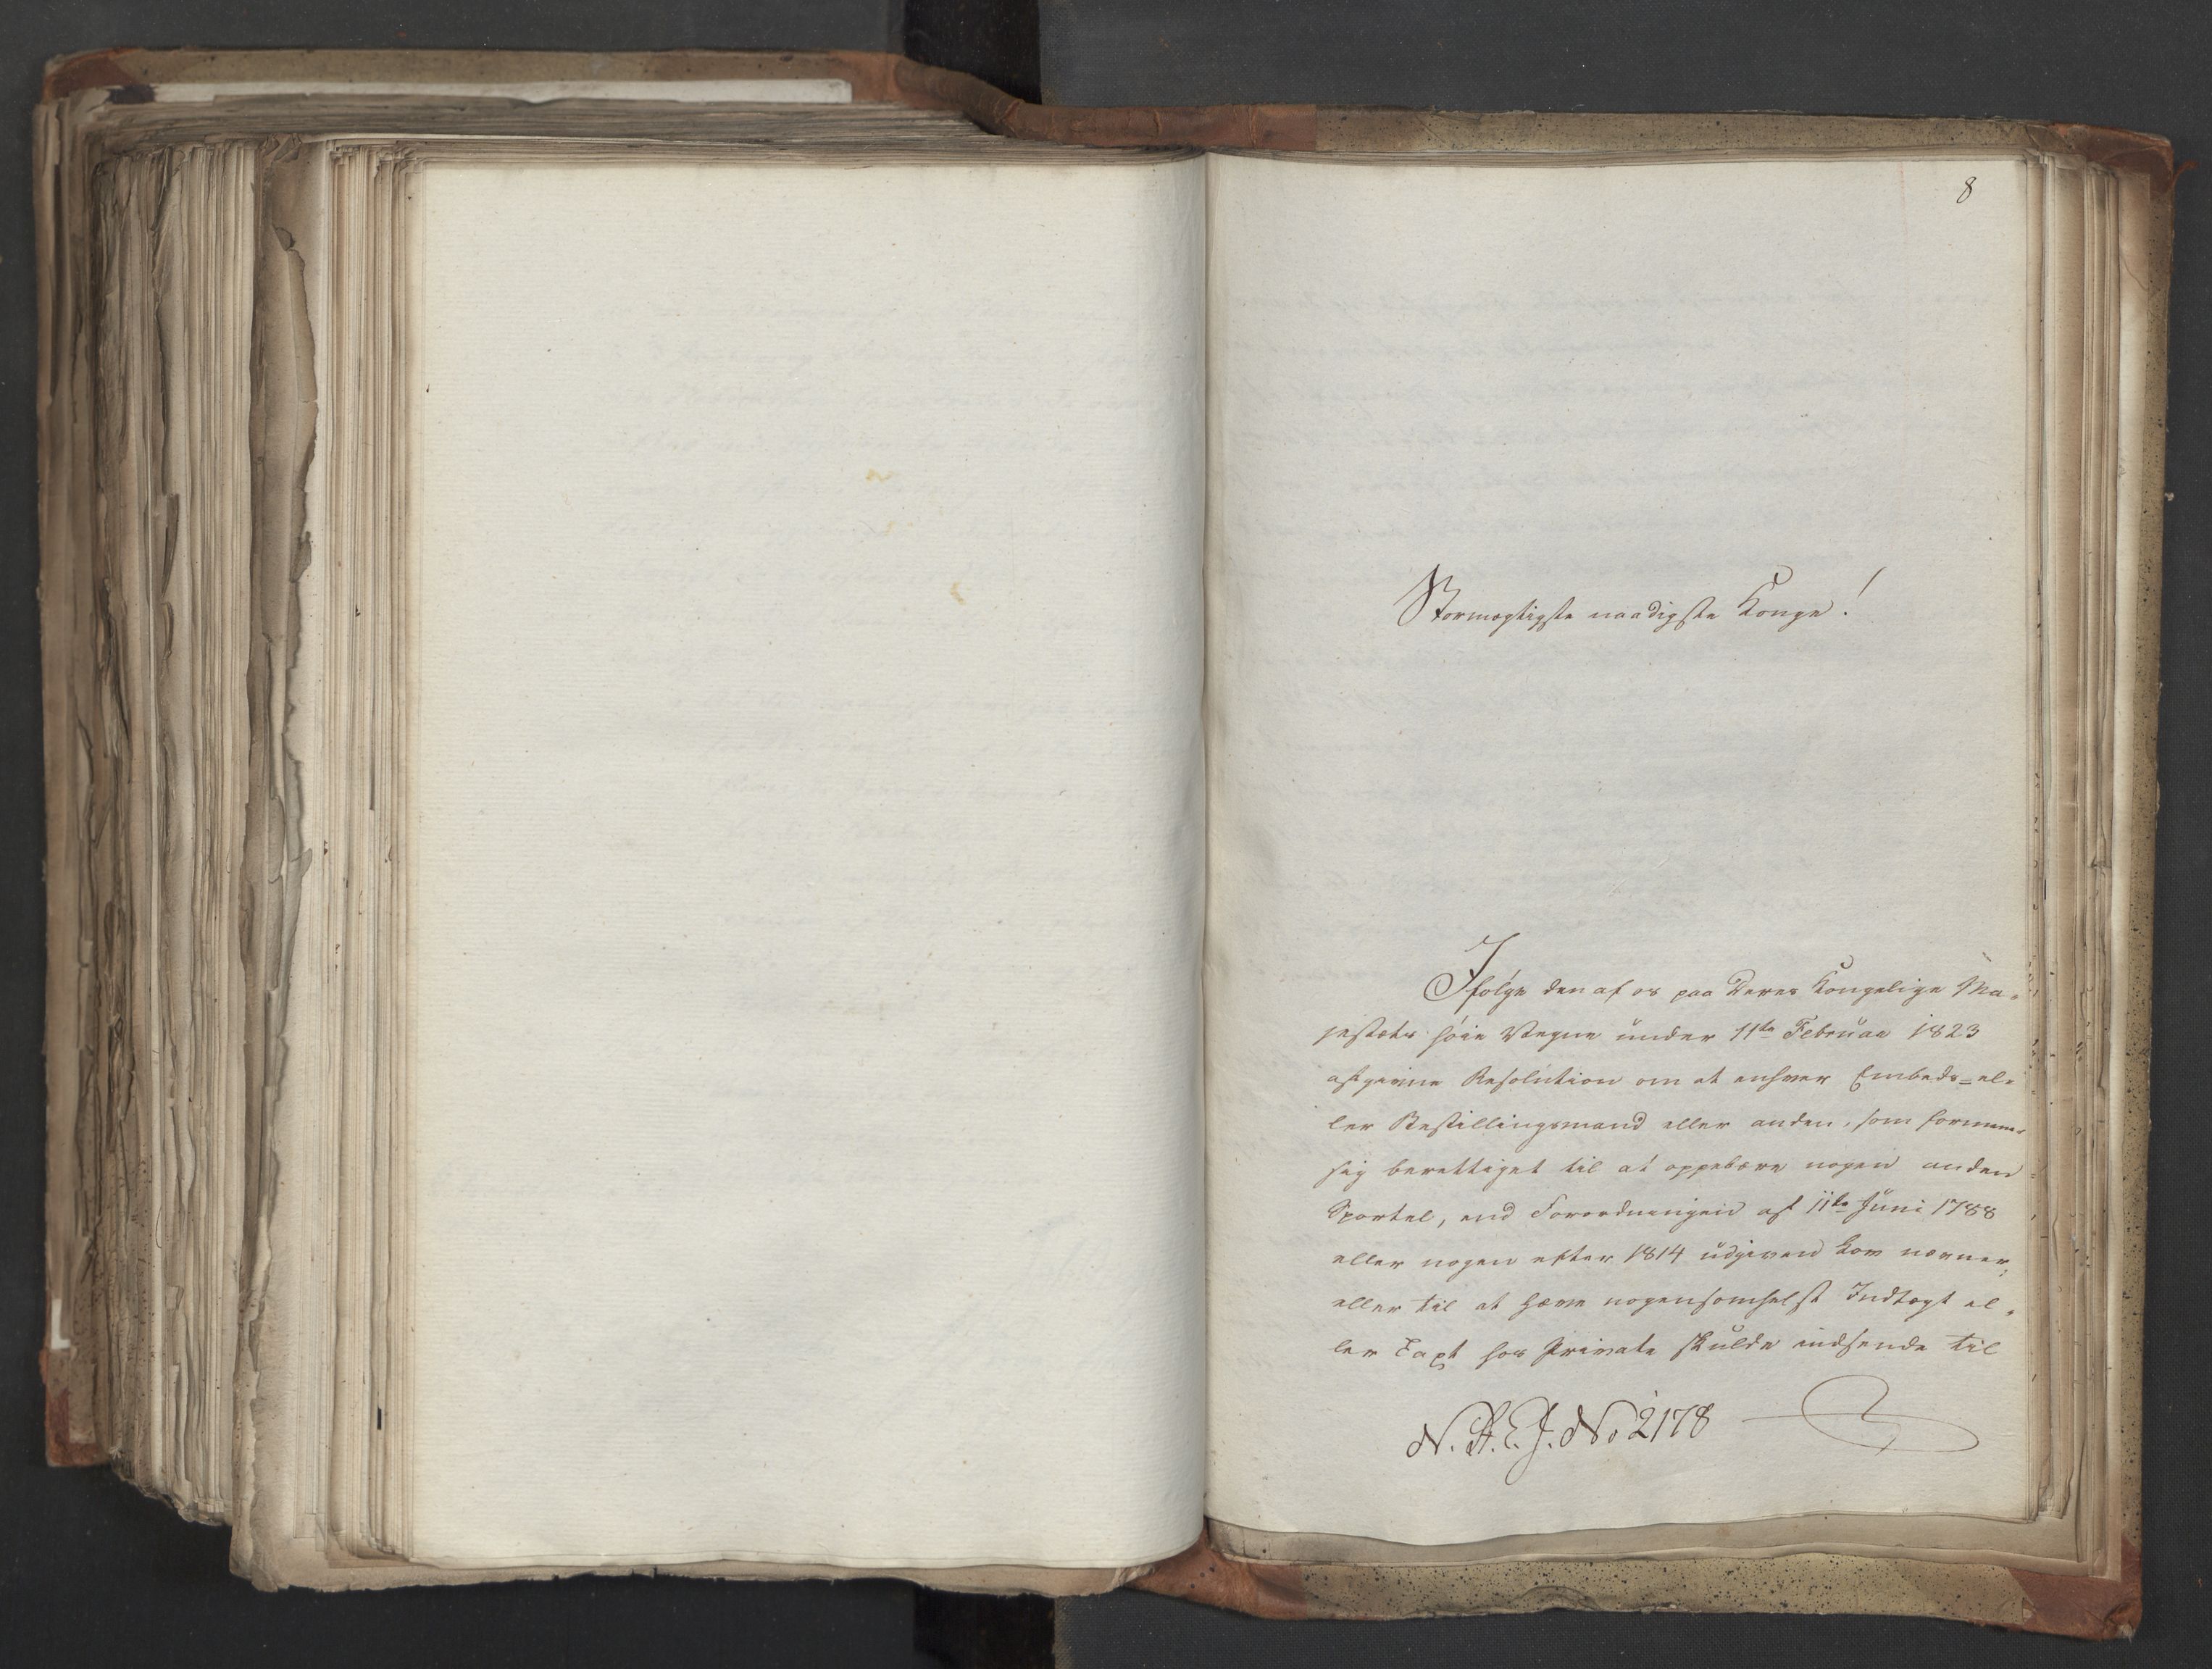 8
Stormægtigste naadigste Konge!
Ifølge den af os paa Deres Kongelige Ma-
jestæts høie Vegne under 11te Februar 1823
afgivne Resolution om at enhver Embeds-el-
ler Bestillingsmand eller anden, som formener
sig berettiget til at oppebære nogen anden
Sportel, end Forordningen af 11te Juni 1788
eller nogen efter 1814 udgiven Lov nævner,
eller til at hæve nogensomhelst Indtægt el-
ler Taxt hos Private skulde indsende til
N. R. E. J. No 2178